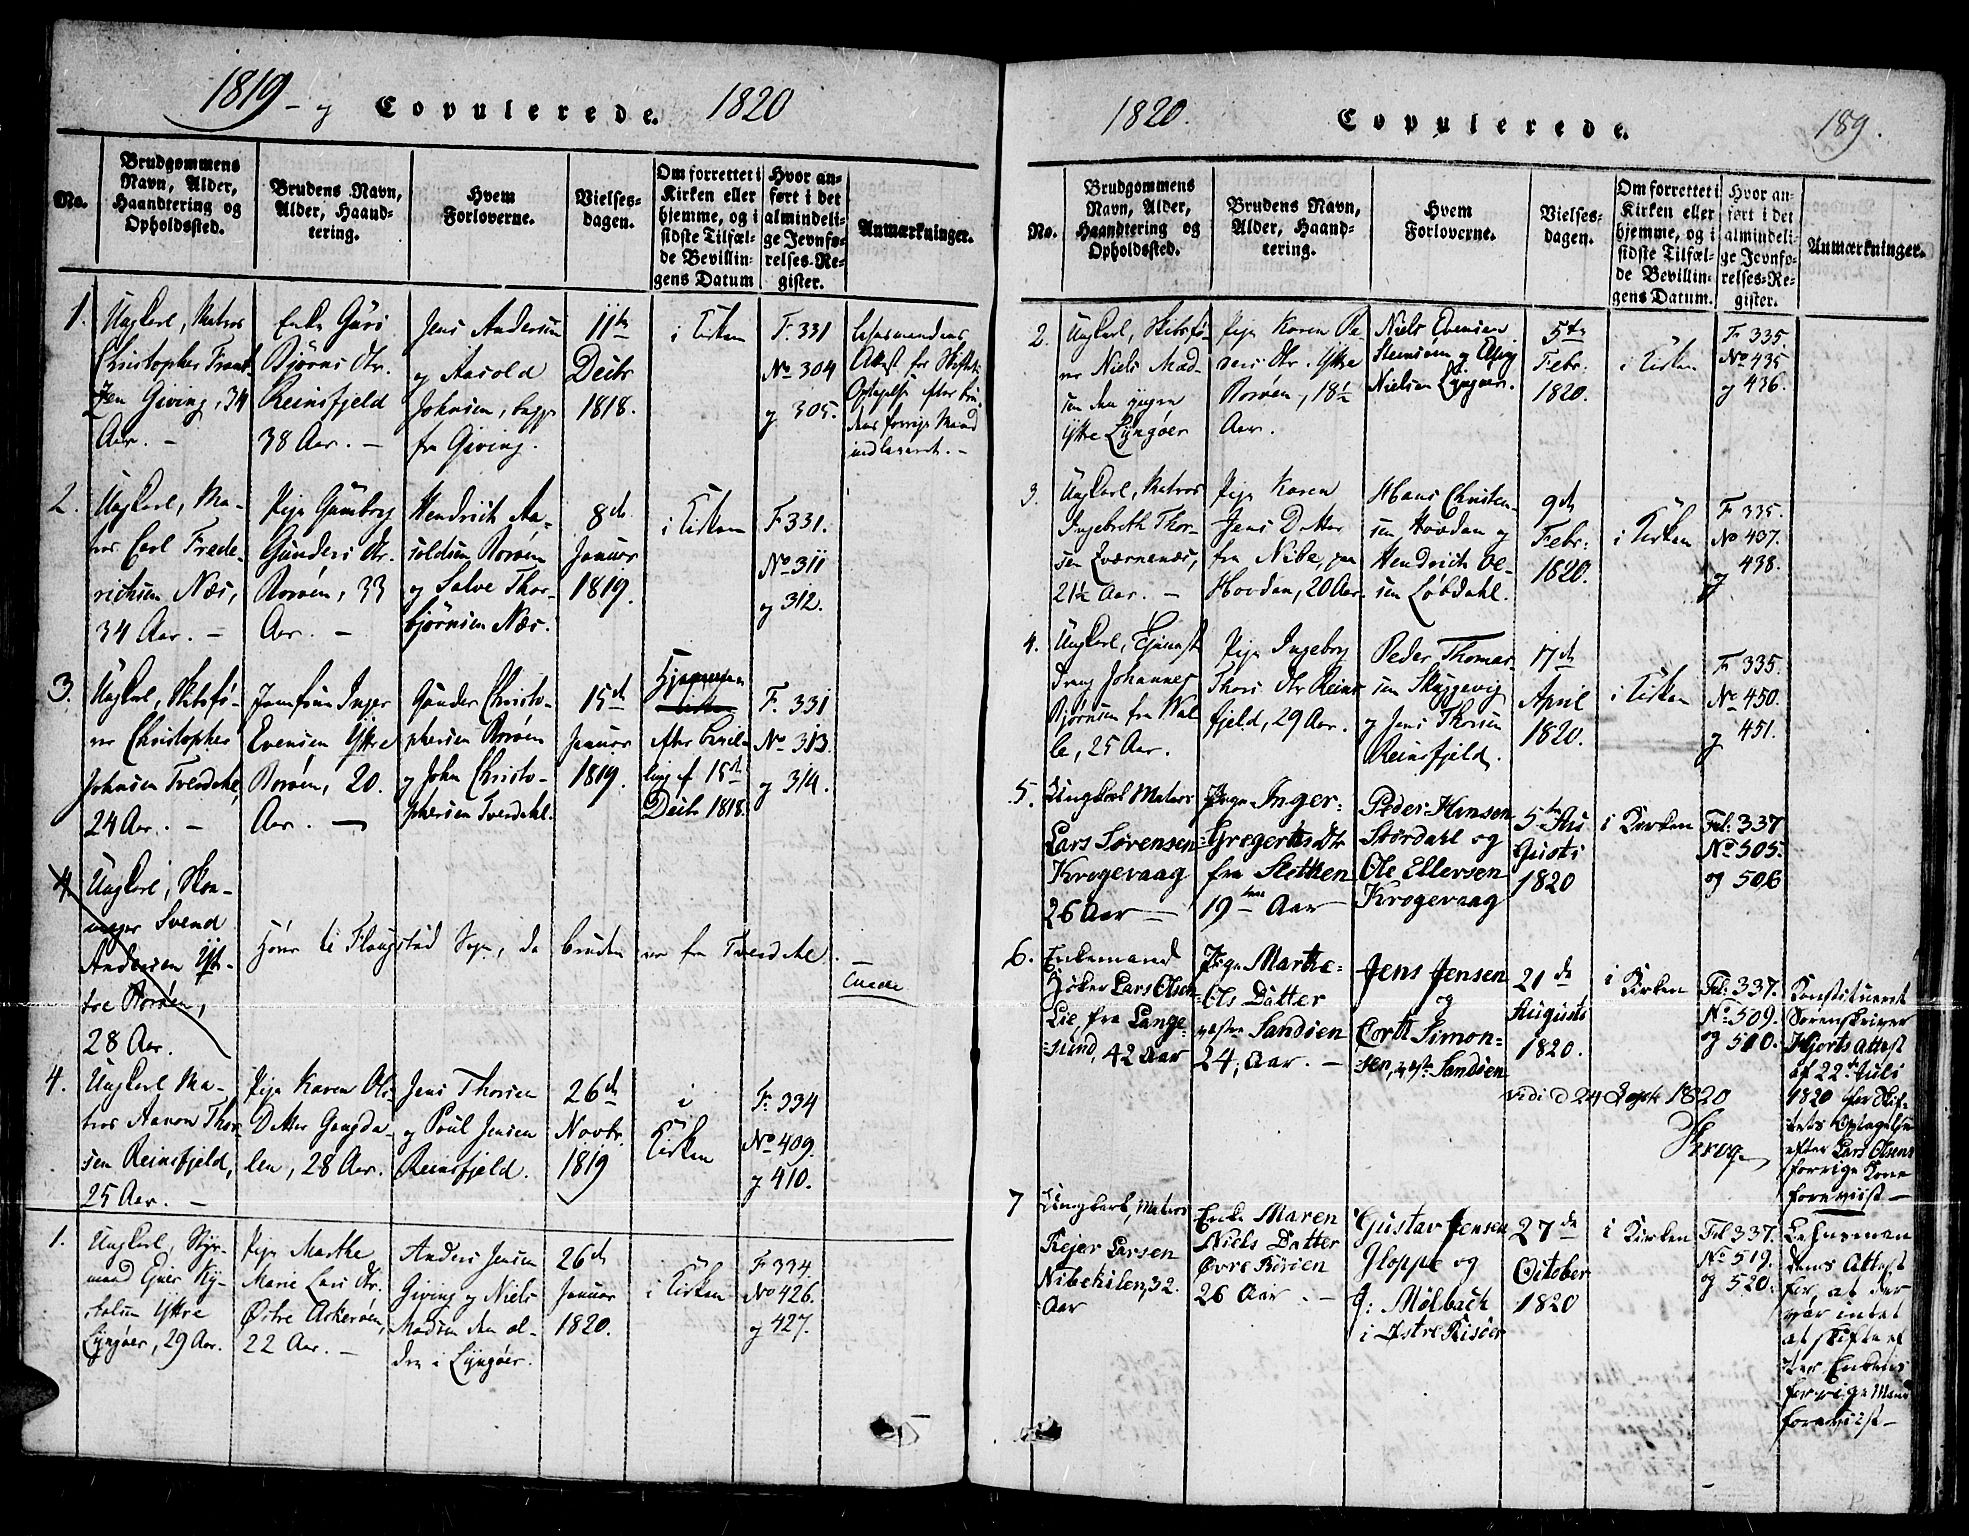 1819 - og Copulerede. 1820
No.
Brudgommens
Navn, Alder,
Haandtering og
Opholdssted.
Brudens Navn,
Alder, Haand-
tering.
Hvem
Forloverne.
Vielses-
dagen.
Om forrettet i
Kirken eller
hjemme, og i
sidste Tilfæl-
de Bevillin-
gens Datum
Hvor an-
ført i det
almindeli-
ge Jevnfø-
relses-Re-
gister.
Anmærkninger.
1.
Ungkarl, Matros
Christopher
Giving, 34
Aar. -
Enke Guri
Bjørns Dtr.
Reinsfjeld
38 Aar. -
Jens Andersen
og Aasold
Johnsen, begge
fra Giving.
11te
Decbr
1818.
i Kirken
F. 331
No 304
og 305.
Attest for Skiftets
Mand
2.
Ungkarl, Ma-
tros Carl Frede-
richsen Næs,
34 Aar. -
Pige Gunborg
Gunders Dtr.
Borøen, 33
Aar. -
Hendrich Aa-
soldsen Borøen
og Salve Thor-
bjørnsen Næs.
8de
Januar
1819.
i Kirken
F 331.
No 311
og 312.
3.
Ungkarl, Skibsfø-
rer Christopher
Johnsen Tverdahl,
24 Aar. -
Jomfrue Inger
Evensen Yttre
Borøen, 20.
Aar. -
Gunder Christo-
phersen Borøen
og John Christo-
phersen Tverdahl.
15de
Januar
1819.
Hjemme
efter Bevil-
ling af 15de
Decbr 1818.
F. 331
No 313.
og 314.
4
Ungkarl,
Svend
Andersen Yt-
tre Borøen,
28 Aar.
hører til Flaugstad Sogn, da Bruden er fra Tverdahl.
4.
Ungkarl Ma-
tros Aanon Thor-
sen Reinsfjeld,
25 Aar. -
Pige Karen Ols
Datter Gongda-
len, 28 Aar.
Jens Thorsen
og Poul Jensen
Reinsfjeld.
26de
Novbr.
1819
i
Kirken
F. 334
No 409.
og 410.
1.
Ungkarl, Styr-
mand Ejer
Yttre
Lyngøer, 29 Aar.
Pige Marthe
Marie Lars Dtr.
Østre Askerøen,
22 Aar. -
Anders Jensen
Giving og Niels
Madsen den æl-
dre i Lyngøer.
26de
Januar
1820.
i Kirken
F. 334.
No 426.
og 427.
1820. Copulerede. 189.
No.
Brudgommens
Navn, Alder,
Haandtering og
Opholdssted.
Brudens Navn,
Alder, Haand-
tering.
Hvem
Forloverne.
Vielses-
dagen.
Om forrettet i
Kirken eller
hjemme, og i
sidste Tilfæl-
de Bevillin-
gens Datum.
Hvor an-
ført i det
almindeli-
ge Jevnfø-
relses-Re-
gister.
Anmærkninger.
2.
Ungkarl, Skibsfø-
rer Niels Mad-
sen den yngre
Yttre Lyngøer
Pige Karen Pe-
ders Dtr. Yttre
Borøen, 18½
Aar.
Niels Evensen
og
Nielsen Lyngøer.
5te
Febr.
1820.
i Kirken
F. 335.
No 435
og 436.
3.
Ungkarl, Matros
Ingebreth Thor-
sen Qværnenæs,
21½ Aar. -
Pige Karen
Jens Datter
fra Nibe, paa
Hovdan, 20 Aar.
Hans Christen-
sen Hovdan og
Hendrich Ol-
sen Løbdahl.
9de
Febr:
1820.
i Kirken
F 335.
No 437.
og 438.
4.
Ungkarl, Tjeneste
dreng Johannes
Bjørnsen fra Val-
le, 25 Aar.
Pige Ingeborg
Thors Dtr Reins
fjeld, 29 Aar.
Peder Thomas-
sen Skuggevig
og Jens Thorsen
Reinsfjeld.
17de
April
1820.
i Kirken
F 335.
No 450.
og 451.
5.
Ungkarl Matros
Lars Sørensen
Krogevaag
26 Aar -
Pige Inger
Gregerths Dtr
fra Slethen
19 Aar
Peder Hansen
Stordahl og
Ole Ellersen
Krogevaag
5te Au
gusti
1820
i Kirken
Fol: 337
No 505.
og 506
6.
Enkemand
Høker Lars Olsen
Lie, fra Lange-
sund, 42 Aar
Pige Marthe
Ols Datter
vestre Sandøen
24, Aar. -
Jens Jensen
og
Corth Simon-
sen, vestre Sandøen
21de
Augusti
1820.
i
Kirken
Fol: 337.
No: 509.
og 510.
Konstitueret
Sorenskriver
Hjorts Attest
af 22de Juli
1820 for Skif-
tets Optagelse
efter Lars Olsens
forrige Kone
foreviist -
vidi d 24 Sept 1820
Krog
7
Ungkarl, Matros
Rejer Larsen
Nibekilen, 32.
Aar
Enke Maren
Niels Datter
Øvre Risøen
26 Aar. -
Gustav Jensen
Gloppe og
J: Mølbach
i Østre Risøer
27de
October
1820
i Kirken
Fol 337.
No 519.
og 520.
Lehnsman
dens Attest
for, at der
var intet
at skifte ef
ter Enkens
forrige Mand
foreviist -